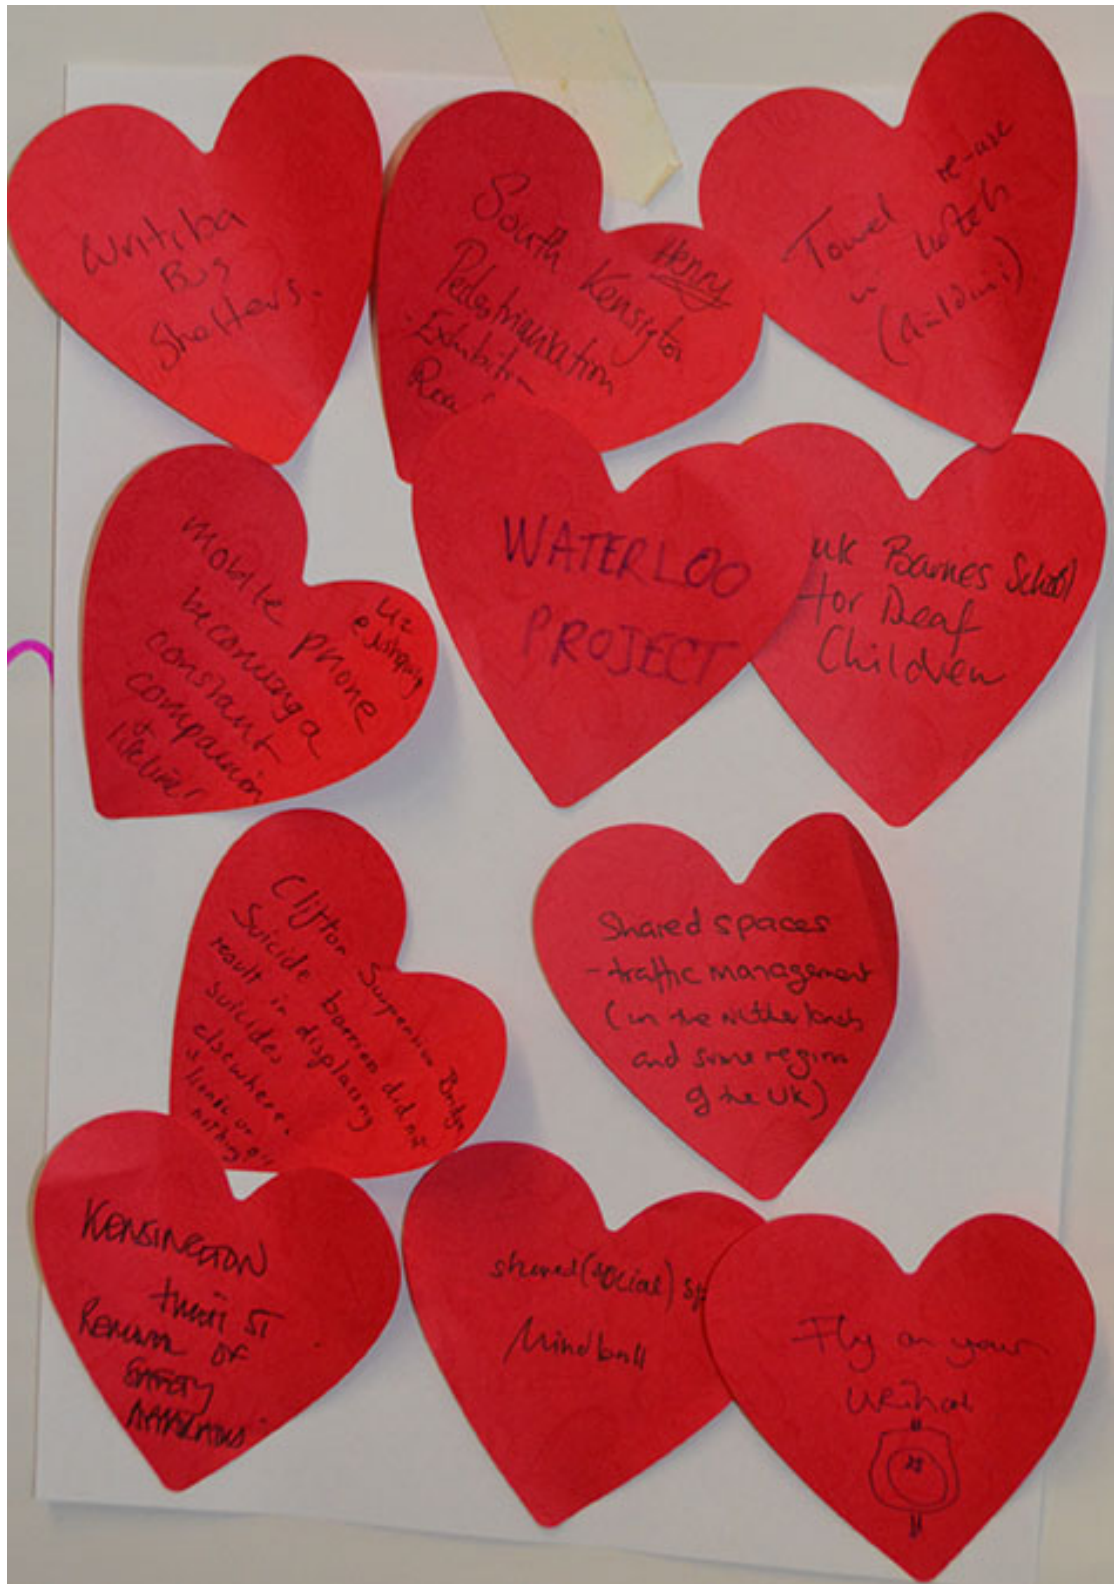 Curitiba
Bus
Shelters.
South Kensigton
Henry
Pedestrianisation
- Exhibition
Towel re-use
(Cialdini)
mobile phone
becoming a
constant
companion
+
WATERLOO
PROJECT
UK Barnes School
for Deaf
Children
Clifton Suspension Bridge
Suicide barrier did not
result in displacing
suicides
elsewhere.
Shared spaces
- traffic management
(in the Netherlands
and some region
of the UK)
KENSINGTON
HIGH ST
REMOVAL OF
SAFETY
shared (social) sp
Mindball
Fly on your
urinal